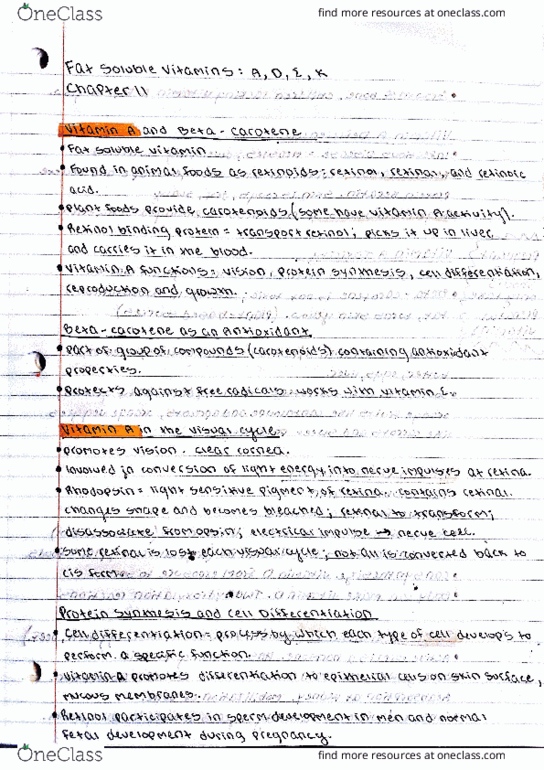 OneClass
find more resources at oneclass.com
Fat Soluble Vitamins: A, D, E, K
Chapter 11
Vitamin A and Beta-Carotene
• Fat soluble vitamin
• Found in animal foods as retinoids: retinol, retinal, and retinoic
acid.
• Plant foods provide carotenoids (some have vitamin A activity).
• Retinol binding protein = transport retinol; picks it up in liver
and carries it in the blood.
• Vitamin A functions = vision, protein synthesis, cell differentiation,
reproduction and growth.
Beta-carotene as an Antioxidant
• part of group of compounds (carotenoids) containing antioxidant
properties.
• Protects against free radicals. works with vitamin E.
Vitamin A in the visual cycle
• promotes vision. clear cornea.
• Involved in conversion of light energy into nerve impulses at retina.
• Rhodopsin = light sensitive pigment of retina. contains retinal.
changes shape and becomes bleached; retinal to transform;
disassociate from opsin; electrical impulse → nerve cell.
• Some retinal is lost each visual cycle; not all is converted back to
cis form
Protein Synthesis and Cell Differentiation
• Cell differentiation = process by which each type of cell develops to
perform a specific function.
• Vitamin A promotes differentiation to epithelial cells on skin surface,
mucous membranes.
• Retinol participates in sperm development in men and normal
fetal development during pregnancy.
OneClass
find more resources at oneclass.com